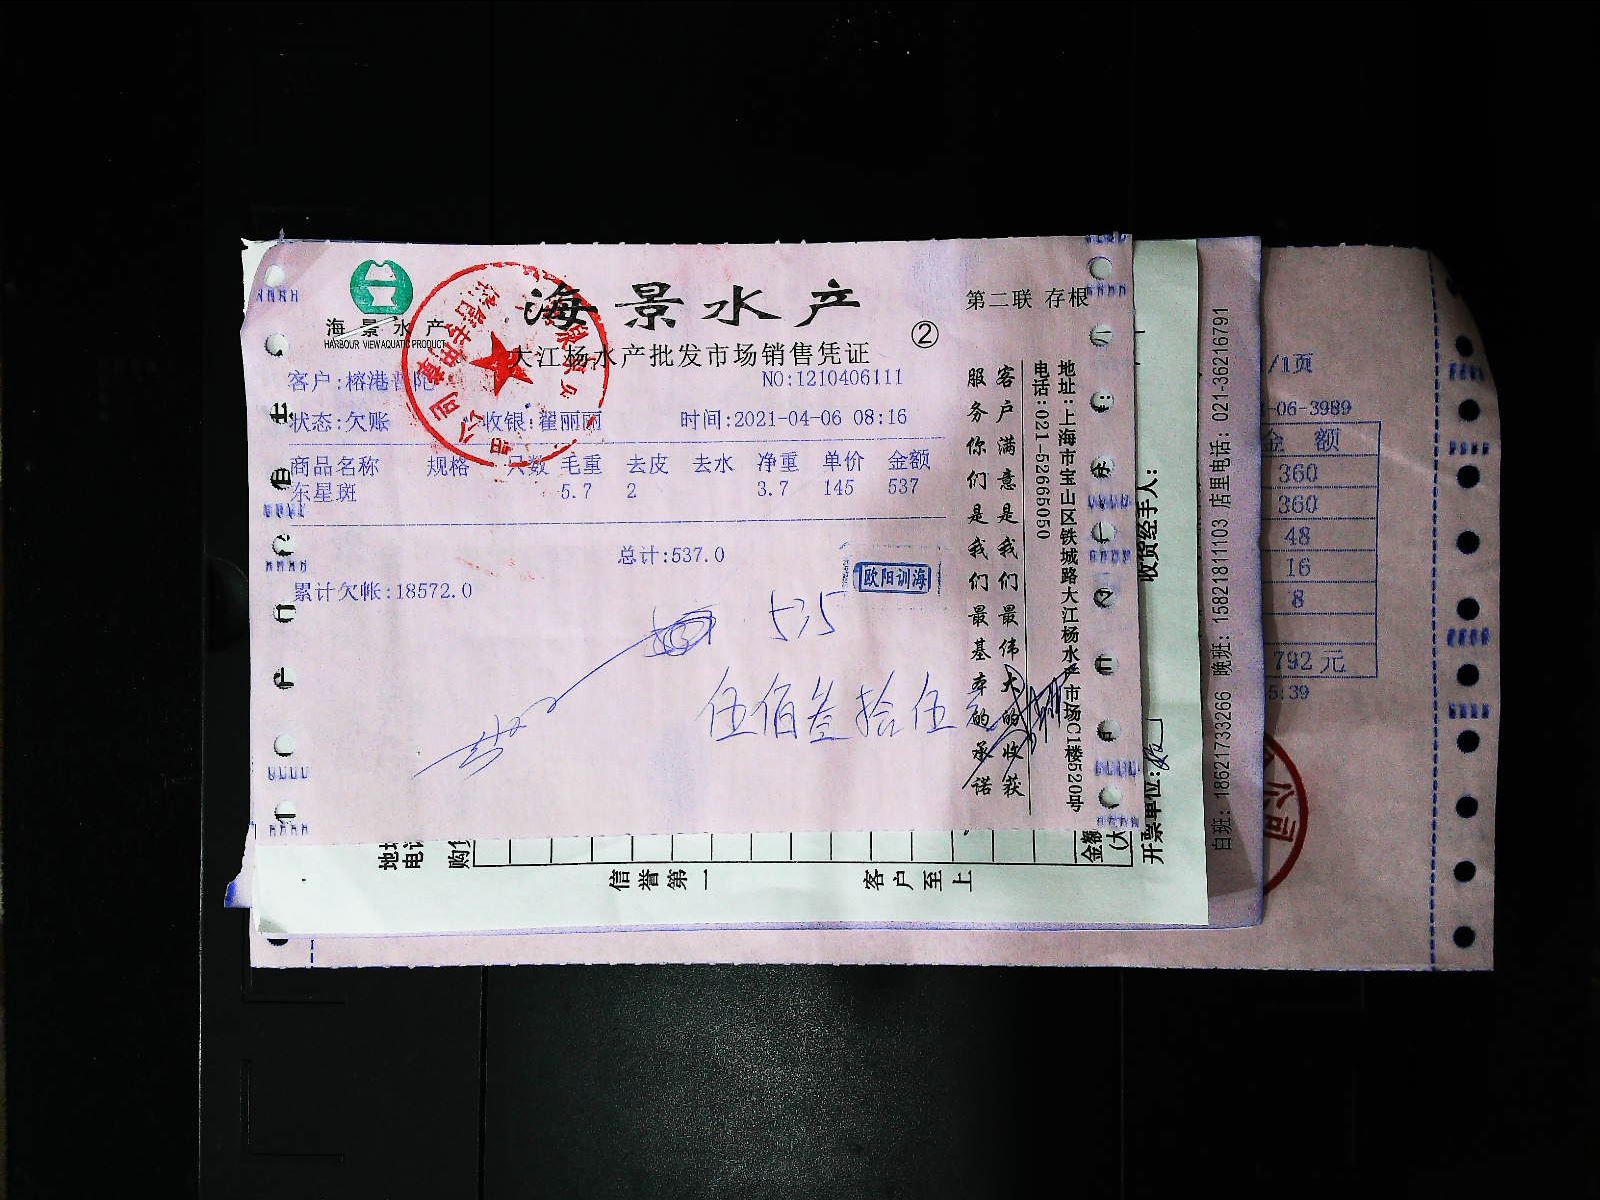 海景水产
HARBOUR VIEW AQUATIC PRODUCT
海景水产
第二联 存根
②
大江杨水产批发市场销售凭证
客户:榕港普陀
NO:1210406111
状态:欠账 收银:翟丽丽 时间:2021-04-06 08:16
商品名称 规格 只数 毛重 去皮 去水 净重 单价 金额
东星斑 5.7 2 3.7 145 537
总计:537.0
累计欠帐:18572.0
欧阳训海
535
伍佰叁拾伍元
服务你们是我们最基本的承诺
客户满意是我们最伟大的收获
电话:021-52665050
地址:上海市宝山区铁城路大江杨水产市场C1楼520号
收货经手人:
开票单位:
地址
电话
购
金额
(大
信誉第一
客户至上
白班: 18621733266 晚班: 15821811103 店里电话: 021-36216791
/1页
-06-3989
金 额
360
360
48
16
8
792元
5:39
公司